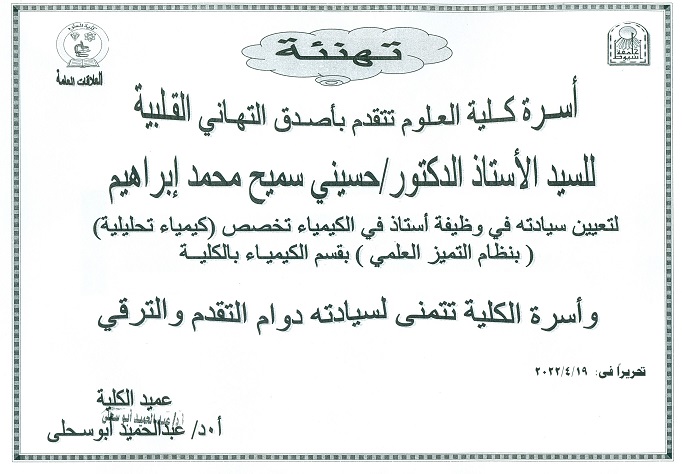 جامعة
أسيوط
كلية العلوم
العلاقات العامة
تهنئة
أسرة كلية العلوم تتقدم بأصدق التهاني القلبية
للسيد الأستاذ الدكتور/حسيني سميح محمد إبراهيم
لتعيين سيادته في وظيفة أستاذ في الكيمياء تخصص (كيمياء تحليلية)
( بنظام التميز العلمي ) بقسم الكيمياء بالكلية
وأسرة الكلية تتمنى لسيادته دوام التقدم والترقي
تحريراً فى: ٢٠٢٢/٤/١٩
عميد الكلية
أ.د/ عبدالحميد أبوسحلى
أ.د/ عبدالحميد أبوسحلى